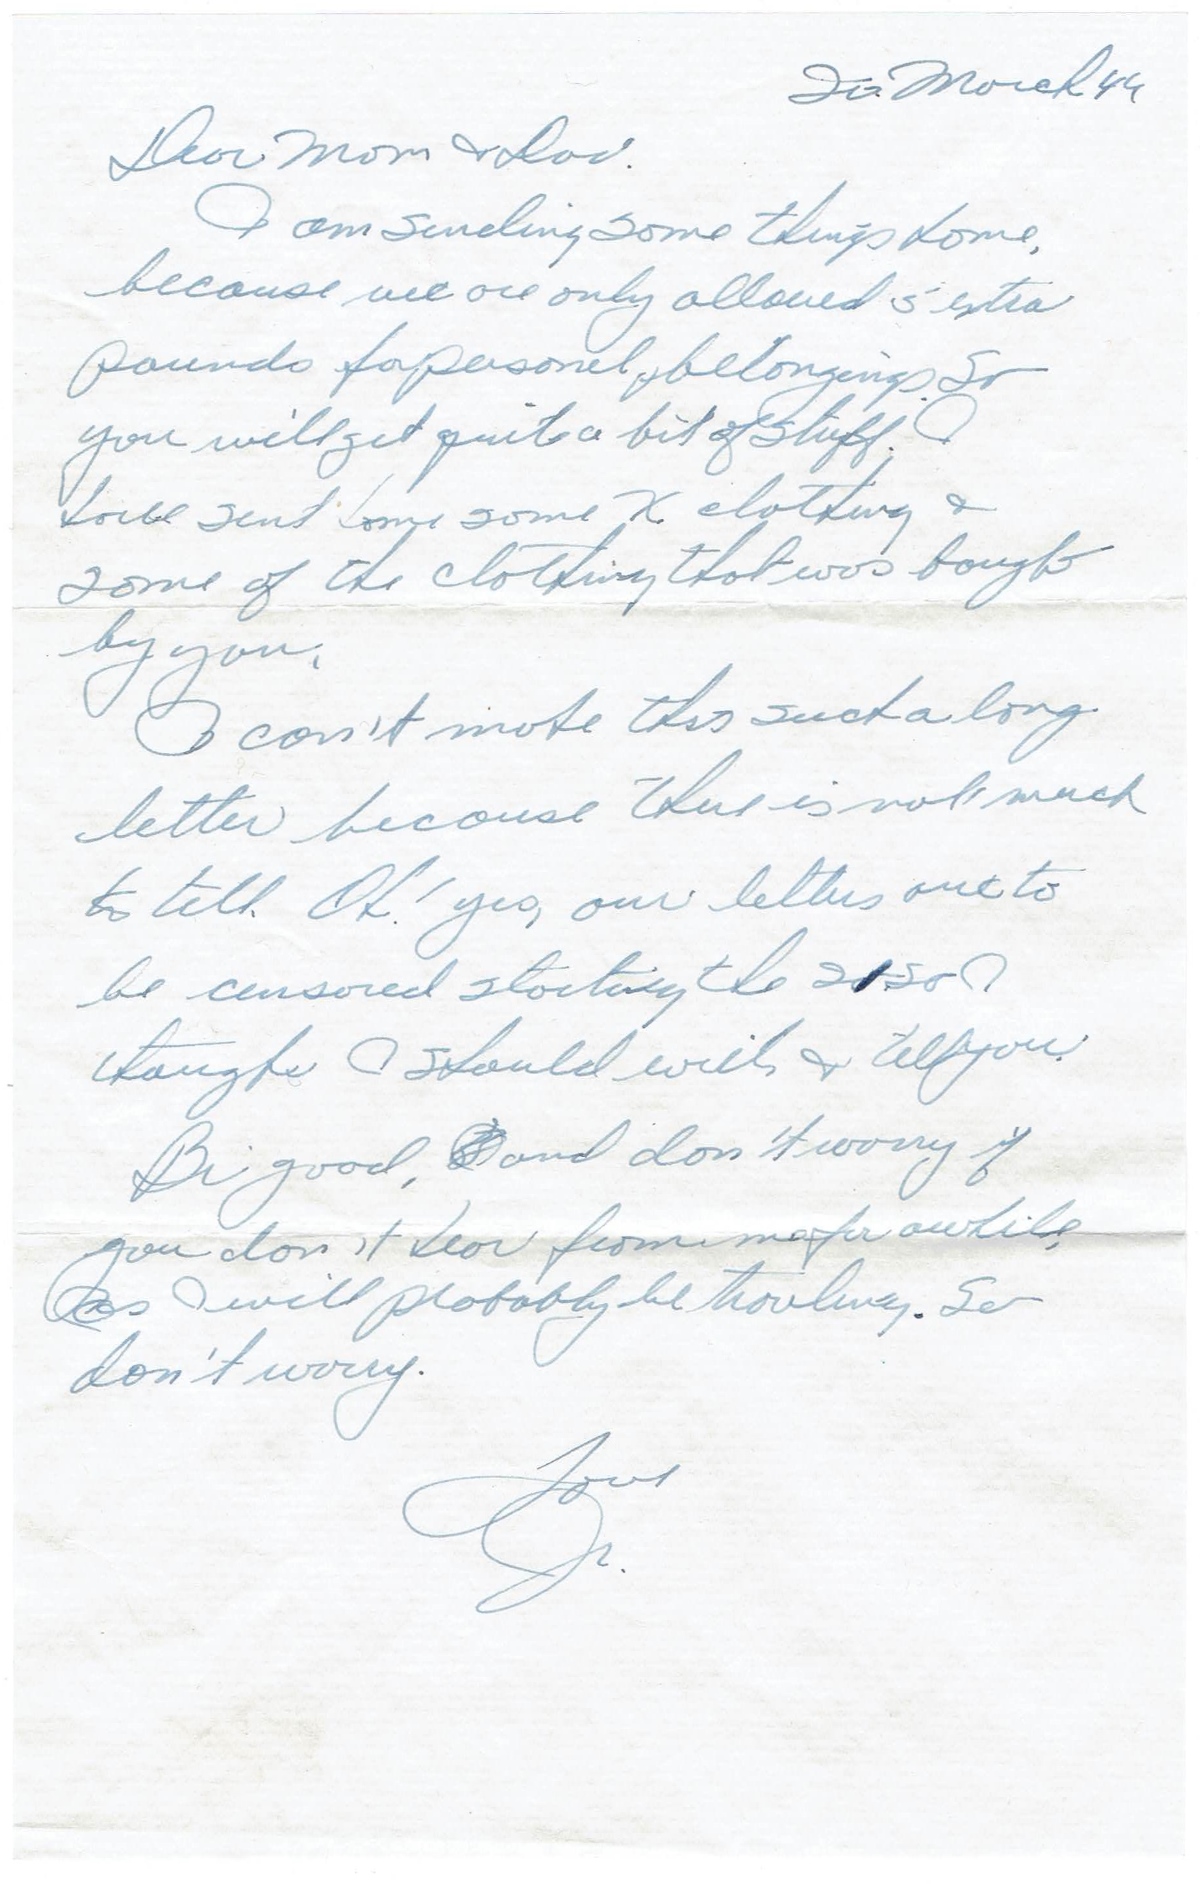 20 March 44
Dear Mom & Dad.
I am sending some things home,
because we are only allowed 5 extra
pounds for personel, belongings. So
you will get quite a bit of stuff. I
have sent home some X clothing &
some of the clothing that was bought
by you.
I can't make this such a long
letter because there is not much
to tell. Oh! yes, our letters are to
be censored starting the 21 so I
thought I should write & tell you.
Be good, and don't worry if
you don't hear from me for awhile,
as I will probably be traveling. So
don't worry.
Love
Jr.